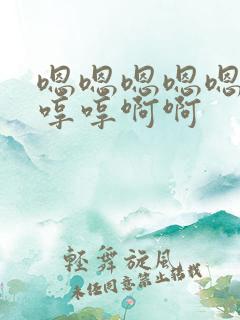 嗯嗯嗯嗯嗯
哼哼啊啊
輕舞旋風
未经同意禁止转载